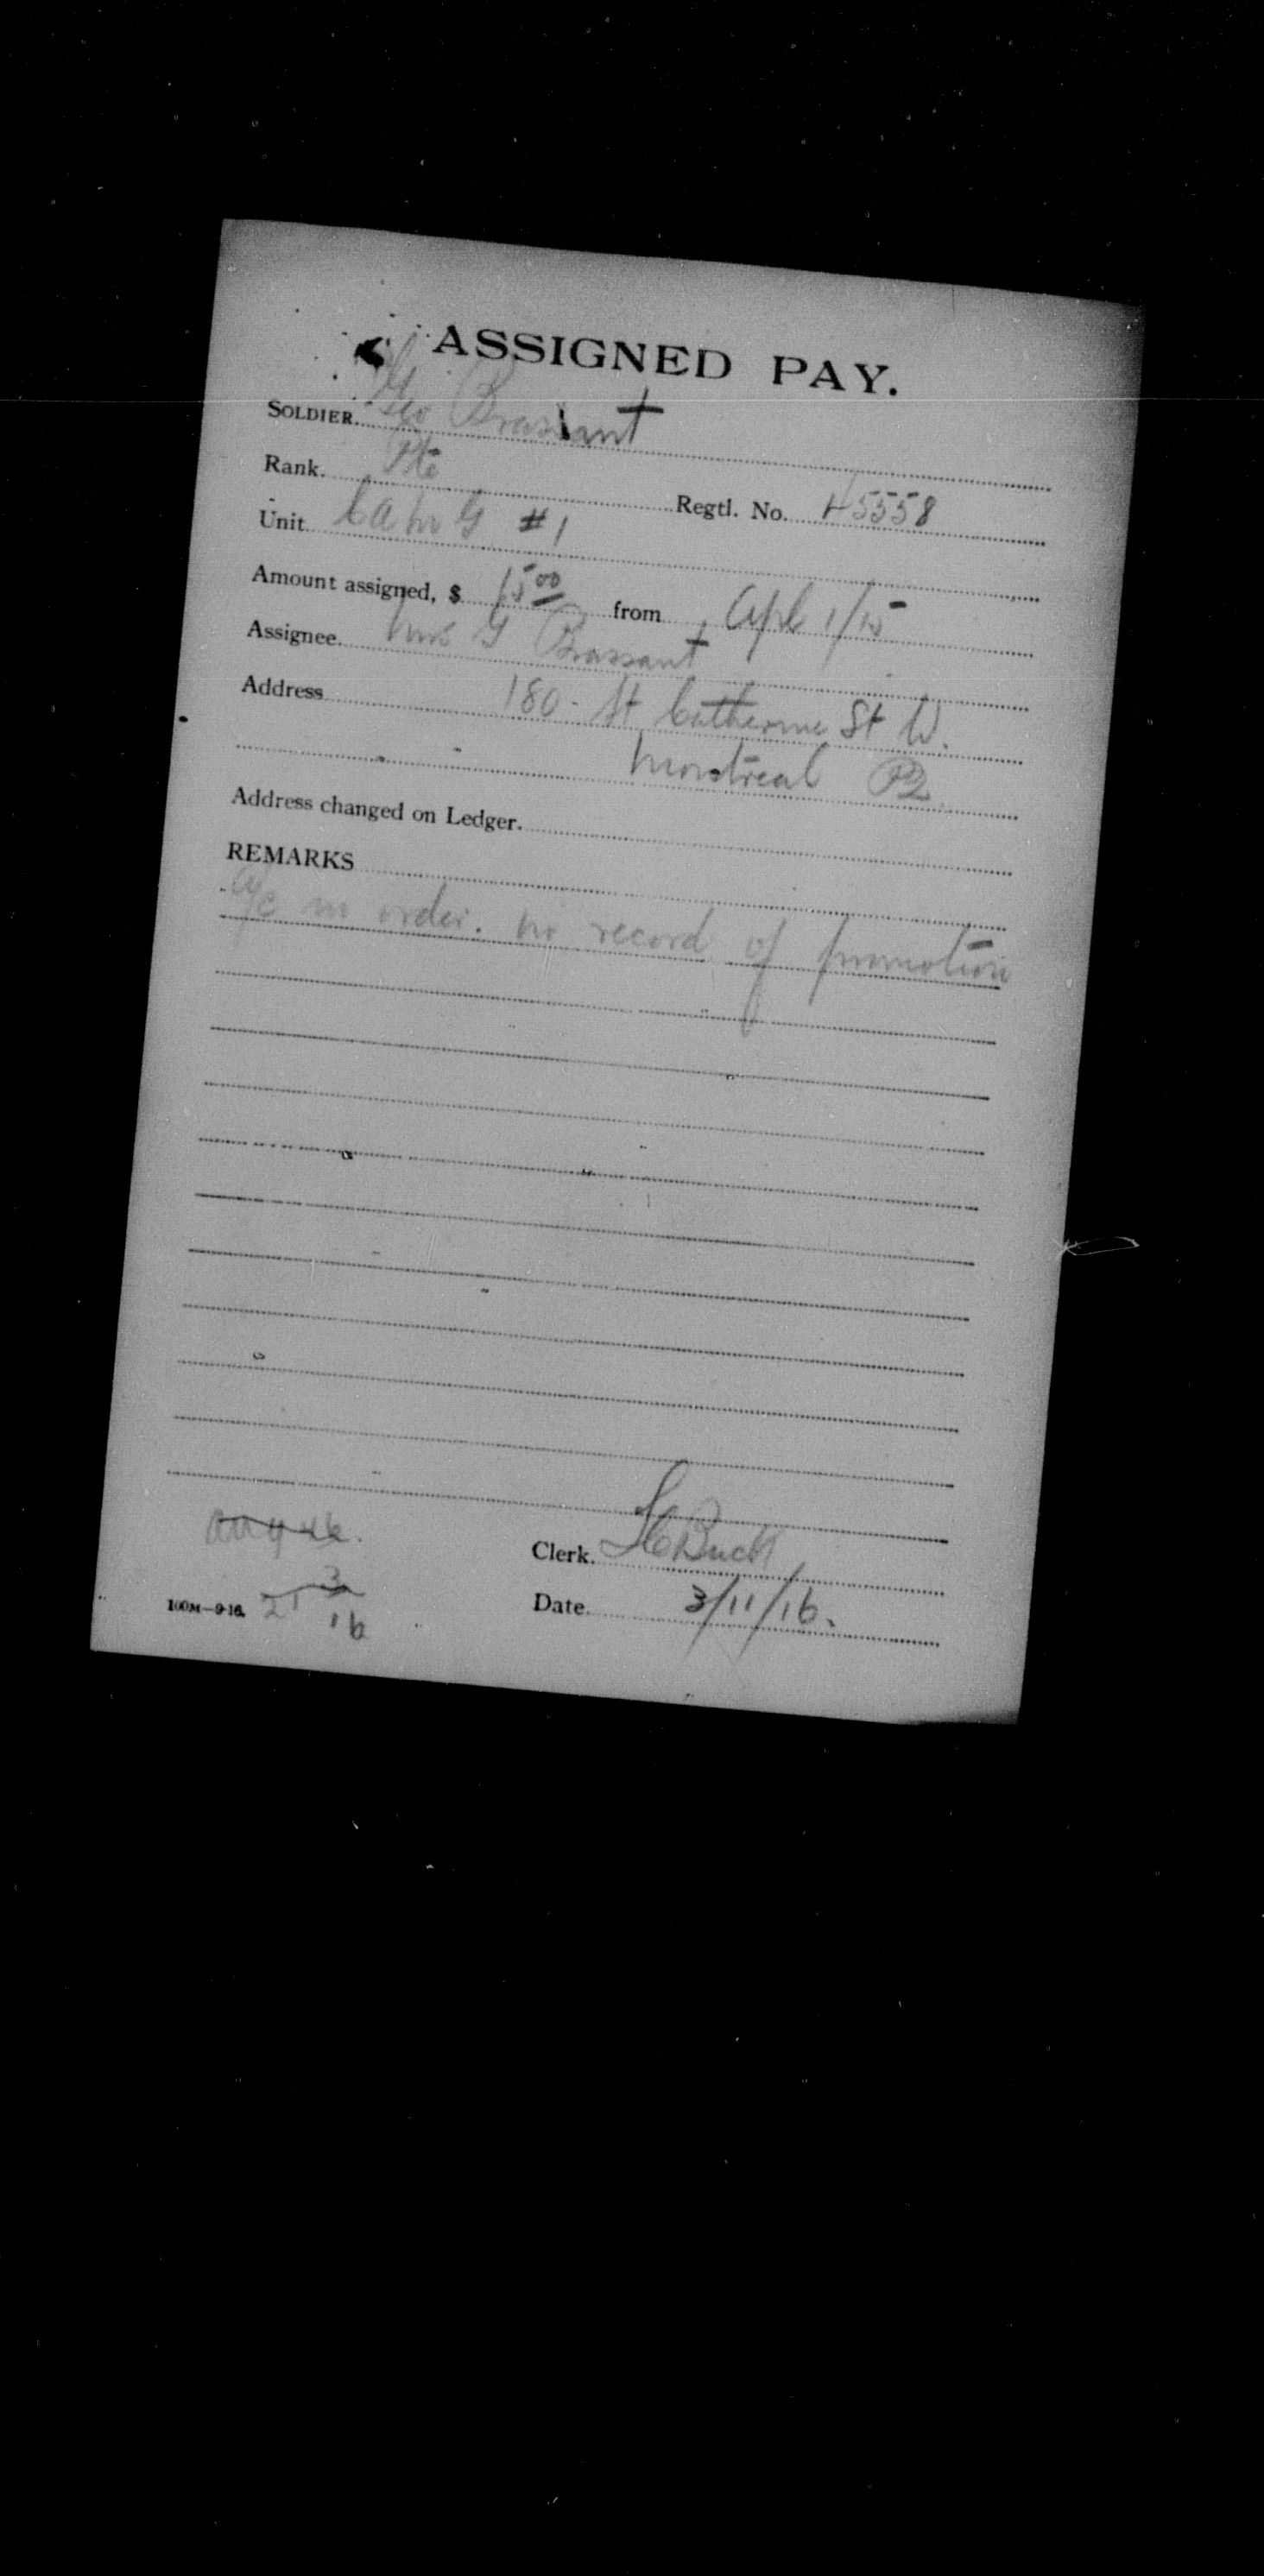 ASSIGNED PAY.
SOLDIER. Geo Brassant
Rank. Pte
Regtl. No. 45558
Unit. C A M G #1
Amount assigned, $ 15 00 from Apl 1/15
Assignee. Mrs G Brassant
Address 180 - St Catherine St W.
Montreal PQ.
Address changed on Ledger.
REMARKS
a/c in order. no record of promotion
Clerk. Buck
Date. 3/11/16.
100M—9-16.
21 3 16